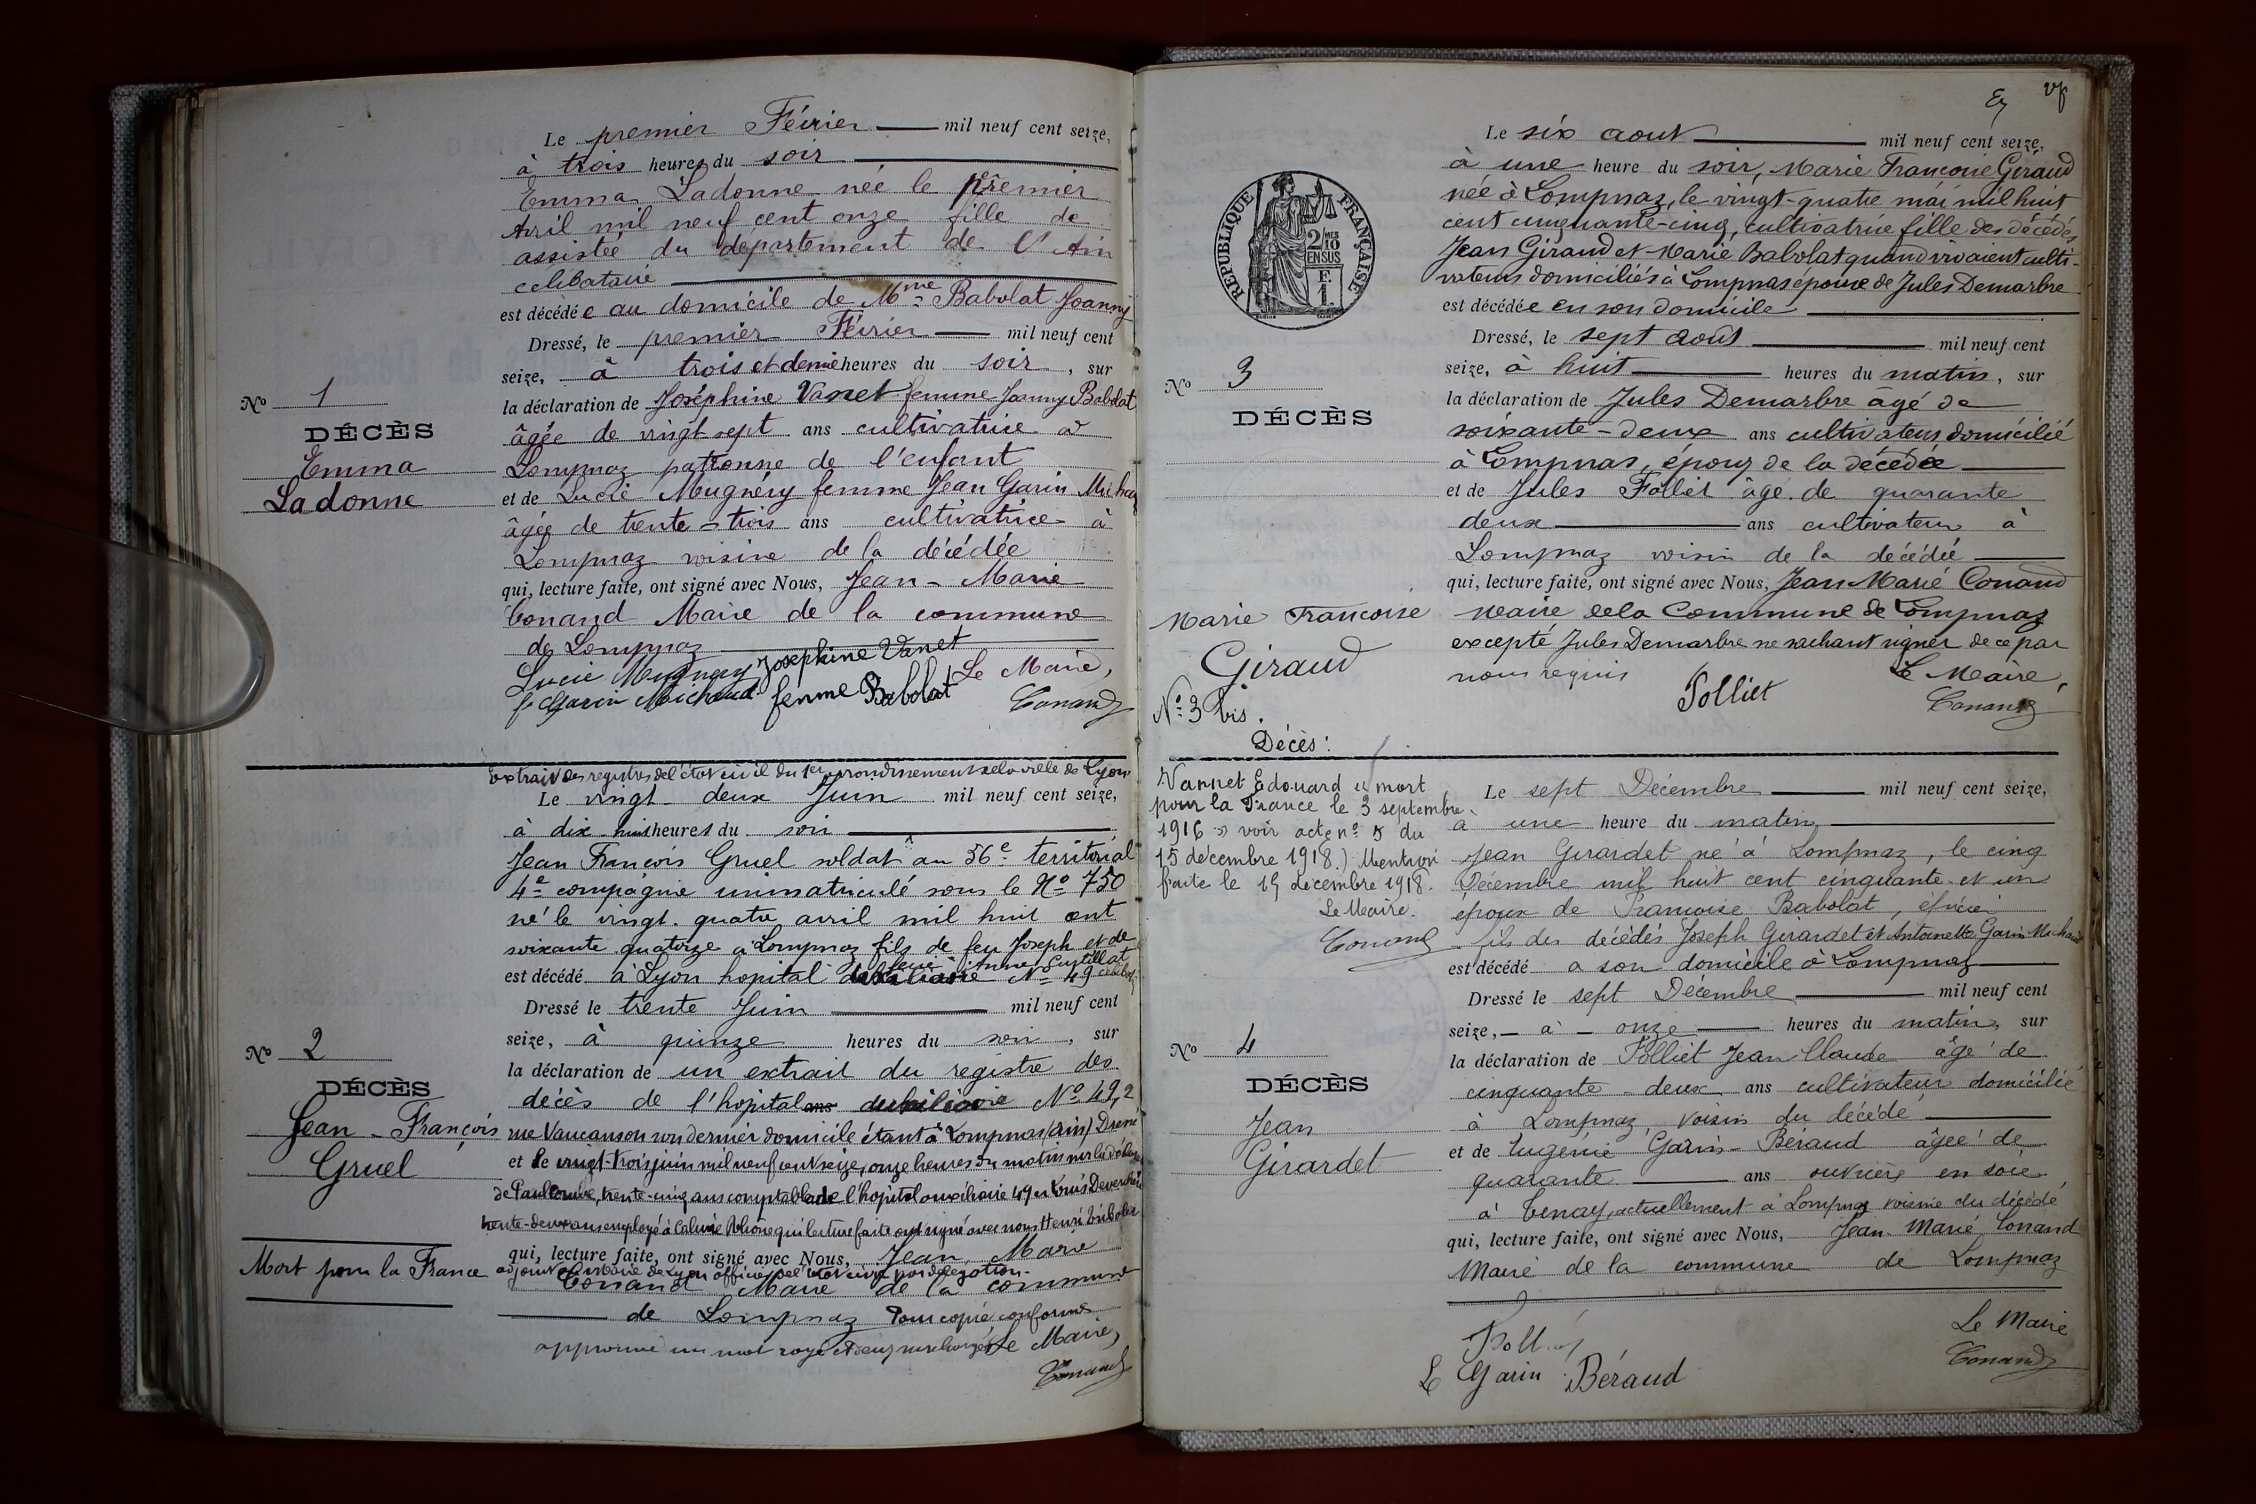 Le premier Février mil neuf cent seize,
à trois heures du soir
Emma Ladonne née le premier
Avril mil neuf cent onze fille de
assistée du département de l'Ain
célibataire
est décédée au domicile de Mme Babolat Joanny
Dressé, le premier Février mil neuf cent
seize, à trois et demie heures du soir, sur
la déclaration de Joséphine Vanet femme Joanny Babolat
âgée de vingt sept ans cultivatrice à
Lompnaz patronne de l'enfant
et de Lucie Mugnéry femme Jean Garin Michaud
âgée de trente-trois ans cultivatrice à
Lompnaz voisine de la décédée
qui, lecture faite, ont signé avec Nous, Jean-Marie
Conand Maire de la commune
de Lompnaz
Josephine Vanet
Lucie Mugnery Le Maire,
f. Garin Michaud femme Babolat Conand
No 1
DÉCÈS
Emma
Ladonne
Extrait des registres de l'état civil du 1er arrondissement de la ville de Lyon
Le vingt-deux Juin mil neuf cent seize,
à dix huit heures du soir
Jean François Gruel soldat au 56e territorial
4e compagnie immatriculé sous le No 750
né le vingt-quatre avril mil huit cent
soixante quatorze à Lompnaz fils de feu Joseph et de
feue Anne Curtillat
est décédé à Lyon hopital auxiliaire No 49
Dressé le trente Juin mil neuf cent
seize, à quinze heures du soir, sur
la déclaration de un extrait du registre des
décès de l'hopital auxiliaire No 49, 2
rue Vaucanson son dernier domicile étant à Lompnas (Ain) Dressé
et le vingt-trois juin mil neuf cent seize, onze heures du matin sur la décl
de Paul trente-cinq ans comptable de l'hôpital auxiliaire 49 et Louis
trente-deux ans employé à Caluire Rhône qui lecture faite ont signé avec nous Henri
qui, lecture faite, ont signé avec Nous, Jean Marie
adjoint au Maire de Lyon officier de l'état civil par délégation.
Conand Maire de la commune
de Lompnaz Pour copie conforme
approuvé un mot rayé et deux surchargés Le Maire,
Conand
No 2
DÉCÈS
Jean-François
Gruel
Mort pour la France
Le six aout mil neuf cent seize,
à une heure du soir, Marie Françoise Giraud
née à Lompnaz, le vingt-quatre mai mil huit
cent cinquante-cinq, cultivatrice fille des décédés
Jean Giraud et Marie Babolat quand vivaient culti-
vateurs domiciliés à Lompnas épouse de Jules Demarbre
est décédée en son domicile
Dressé, le sept août mil neuf cent
seize, à huit heures du matin, sur
la déclaration de Jules Demarbre âgé de
soixante-deux ans cultivateur domicilié
à Lompnas, époux de la décédée
et de Jules Folliet âgé de quarante
deux ans cultivateur à
Lompnaz voisin de la décédée
qui, lecture faite, ont signé avec Nous, Jean Marie Conand
Maire de la Commune de Lompnaz
excepté Jules Demarbre ne sachant signer de ce par
nous requis Le Maire,
Folliet Conand
RÉPUBLIQUE FRANÇAISE
No 3
DÉCÈS
Marie Françoise
Giraud
No 3 bis.
Décès:
Vannet Edouard « mort
pour la France le 3 septembre
1916 » voir acte no 5 du
15 décembre 1918.) Mention
faite le 15 décembre 1918.
Le Maire.
Conand
Le sept Décembre mil neuf cent seize,
à une heure du matin
Jean Girardet né à Lompnaz, le cinq
Décembre mil huit cent cinquante et un
époux de Françoise Babolat,
fils des décédés Joseph Girardet et Antoinette Garin Michaud
est décédé à son domicile à Lompnaz
Dressé le sept Décembre mil neuf cent
seize, à onze heures du matin, sur
la déclaration de Folliet Jean Claude âgé de
cinquante-deux ans cultivateur domicilié
à Lompnaz, voisin du décédé
et de Eugénie Garin-Béraud âgée de
quarante ans ouvrière en soie
à Tenay, actuellement à Lompnaz voisine du décédé
qui, lecture faite, ont signé avec Nous, Jean Marie Conand
Maire de la commune de Lompnaz
Le Maire
Garin Béraud Conand
No 4
DÉCÈS
Jean
Girardet